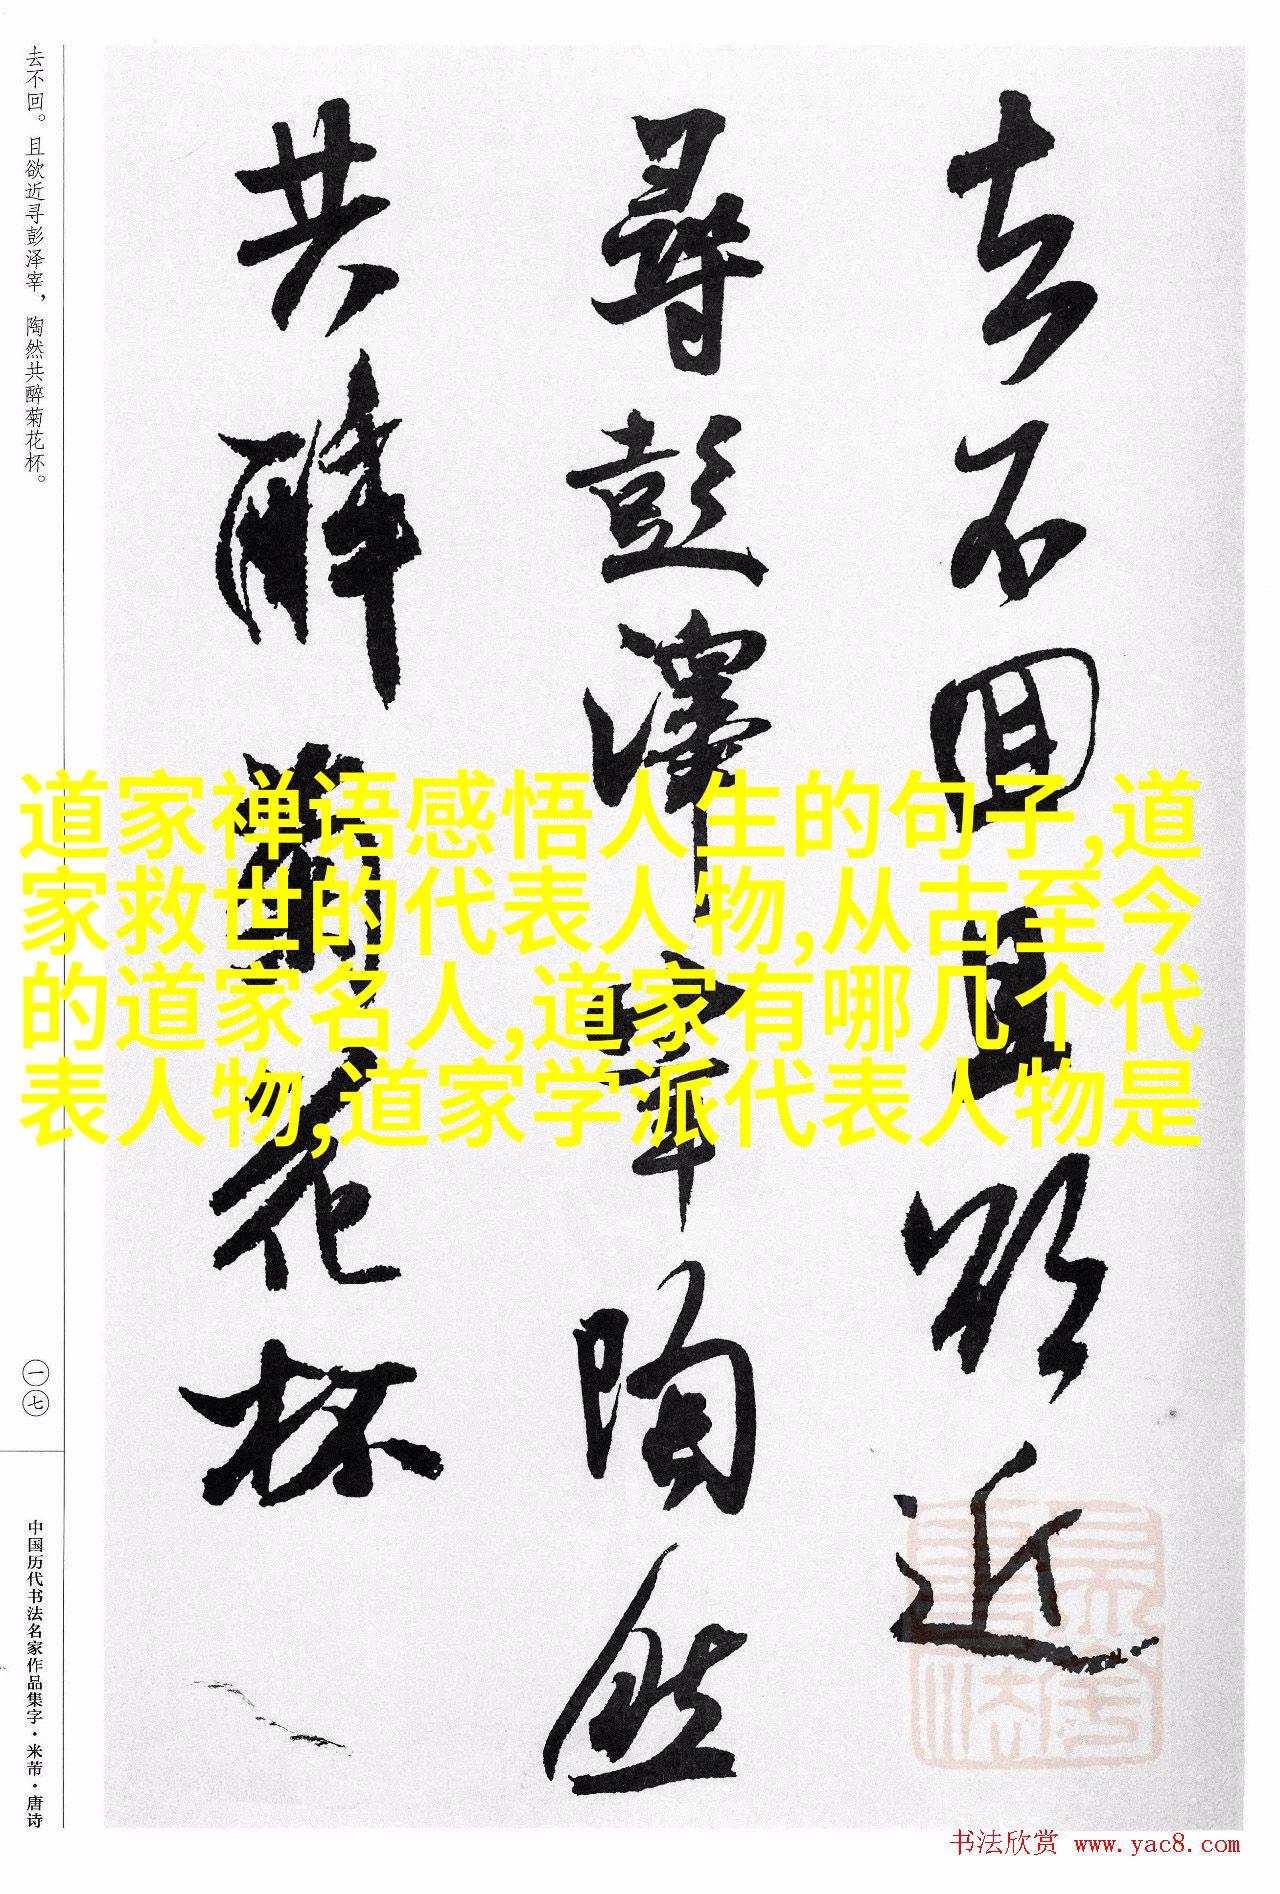 去不回且欲近
尋彭澤宰陶然
共醉菊花杯
去不回。且欲近寻彭泽宰，陶然共醉菊花杯。
一七
中国历代书法名家作品集字·米芾·唐诗
道家禅语感悟人生的句子,道
家救世的代表人物,从古至今
的道家名人,道家有哪几个代
表人物,道家学派代表人物是
书法欣赏 www.yac8.com